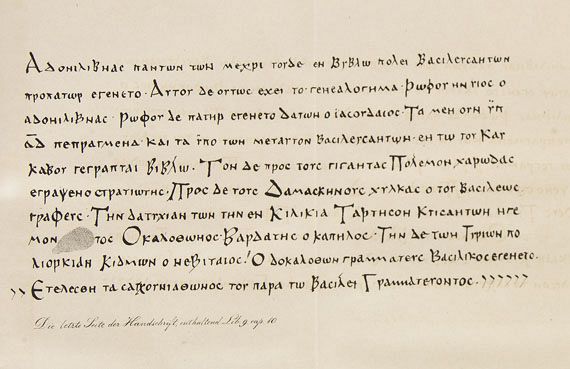 Αδονιλιβνας παντων των μεχρι τουδε εν Βυβλω πολει Βασιλευσαντων
προπατωρ εγενετο · Αυτου δε ουτως εχει το γενεαλογημα · Ρωφου ην υιος ο
αδονιλιβνας · Ρωφου δε πατηρ εγενετο δατων ο ιασορδαιος · Τα μεν ουν ϋπ
πεπραγμενα · και τα ϋπο των μεταυτον βασιλευσαντων · εν τω του Και
καβου γεγραπται βιβλω · Τον δε προς τους γιγαντας Πολεμον χαρωδας
εγραψενο στρατιωτης · Προς δε τους Δαμασκηνους χυλκας ο του βασιλεως
γραφευς · Την δατυχιαν των την εν Κιλικια Ταρτησον κτισαντων ηγε
μον τος Οκαλοθωνος · Βαρδατης ο καπηλος · Την δε των Τυριων πο
λιορκιαν Κιδμων ο νεβιταιος · Ο δοκαλοθων γραμματευς Βασιλικος εγενετο ·
Ετελεσθη τα σαχογνιαθωνος του παρα τω Βασιλει Γραμματευοντος ·
Die letzte Seite der Handschrift, enthaltend Lib. 9 cap. 10